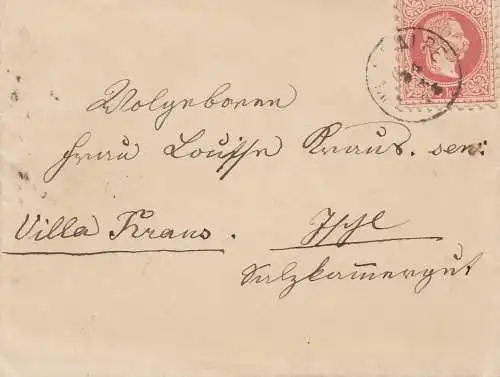 Wolgeboren
Frau Louisse Kraus. sen:
Villa Kraus. Ischl
Salzkammergut